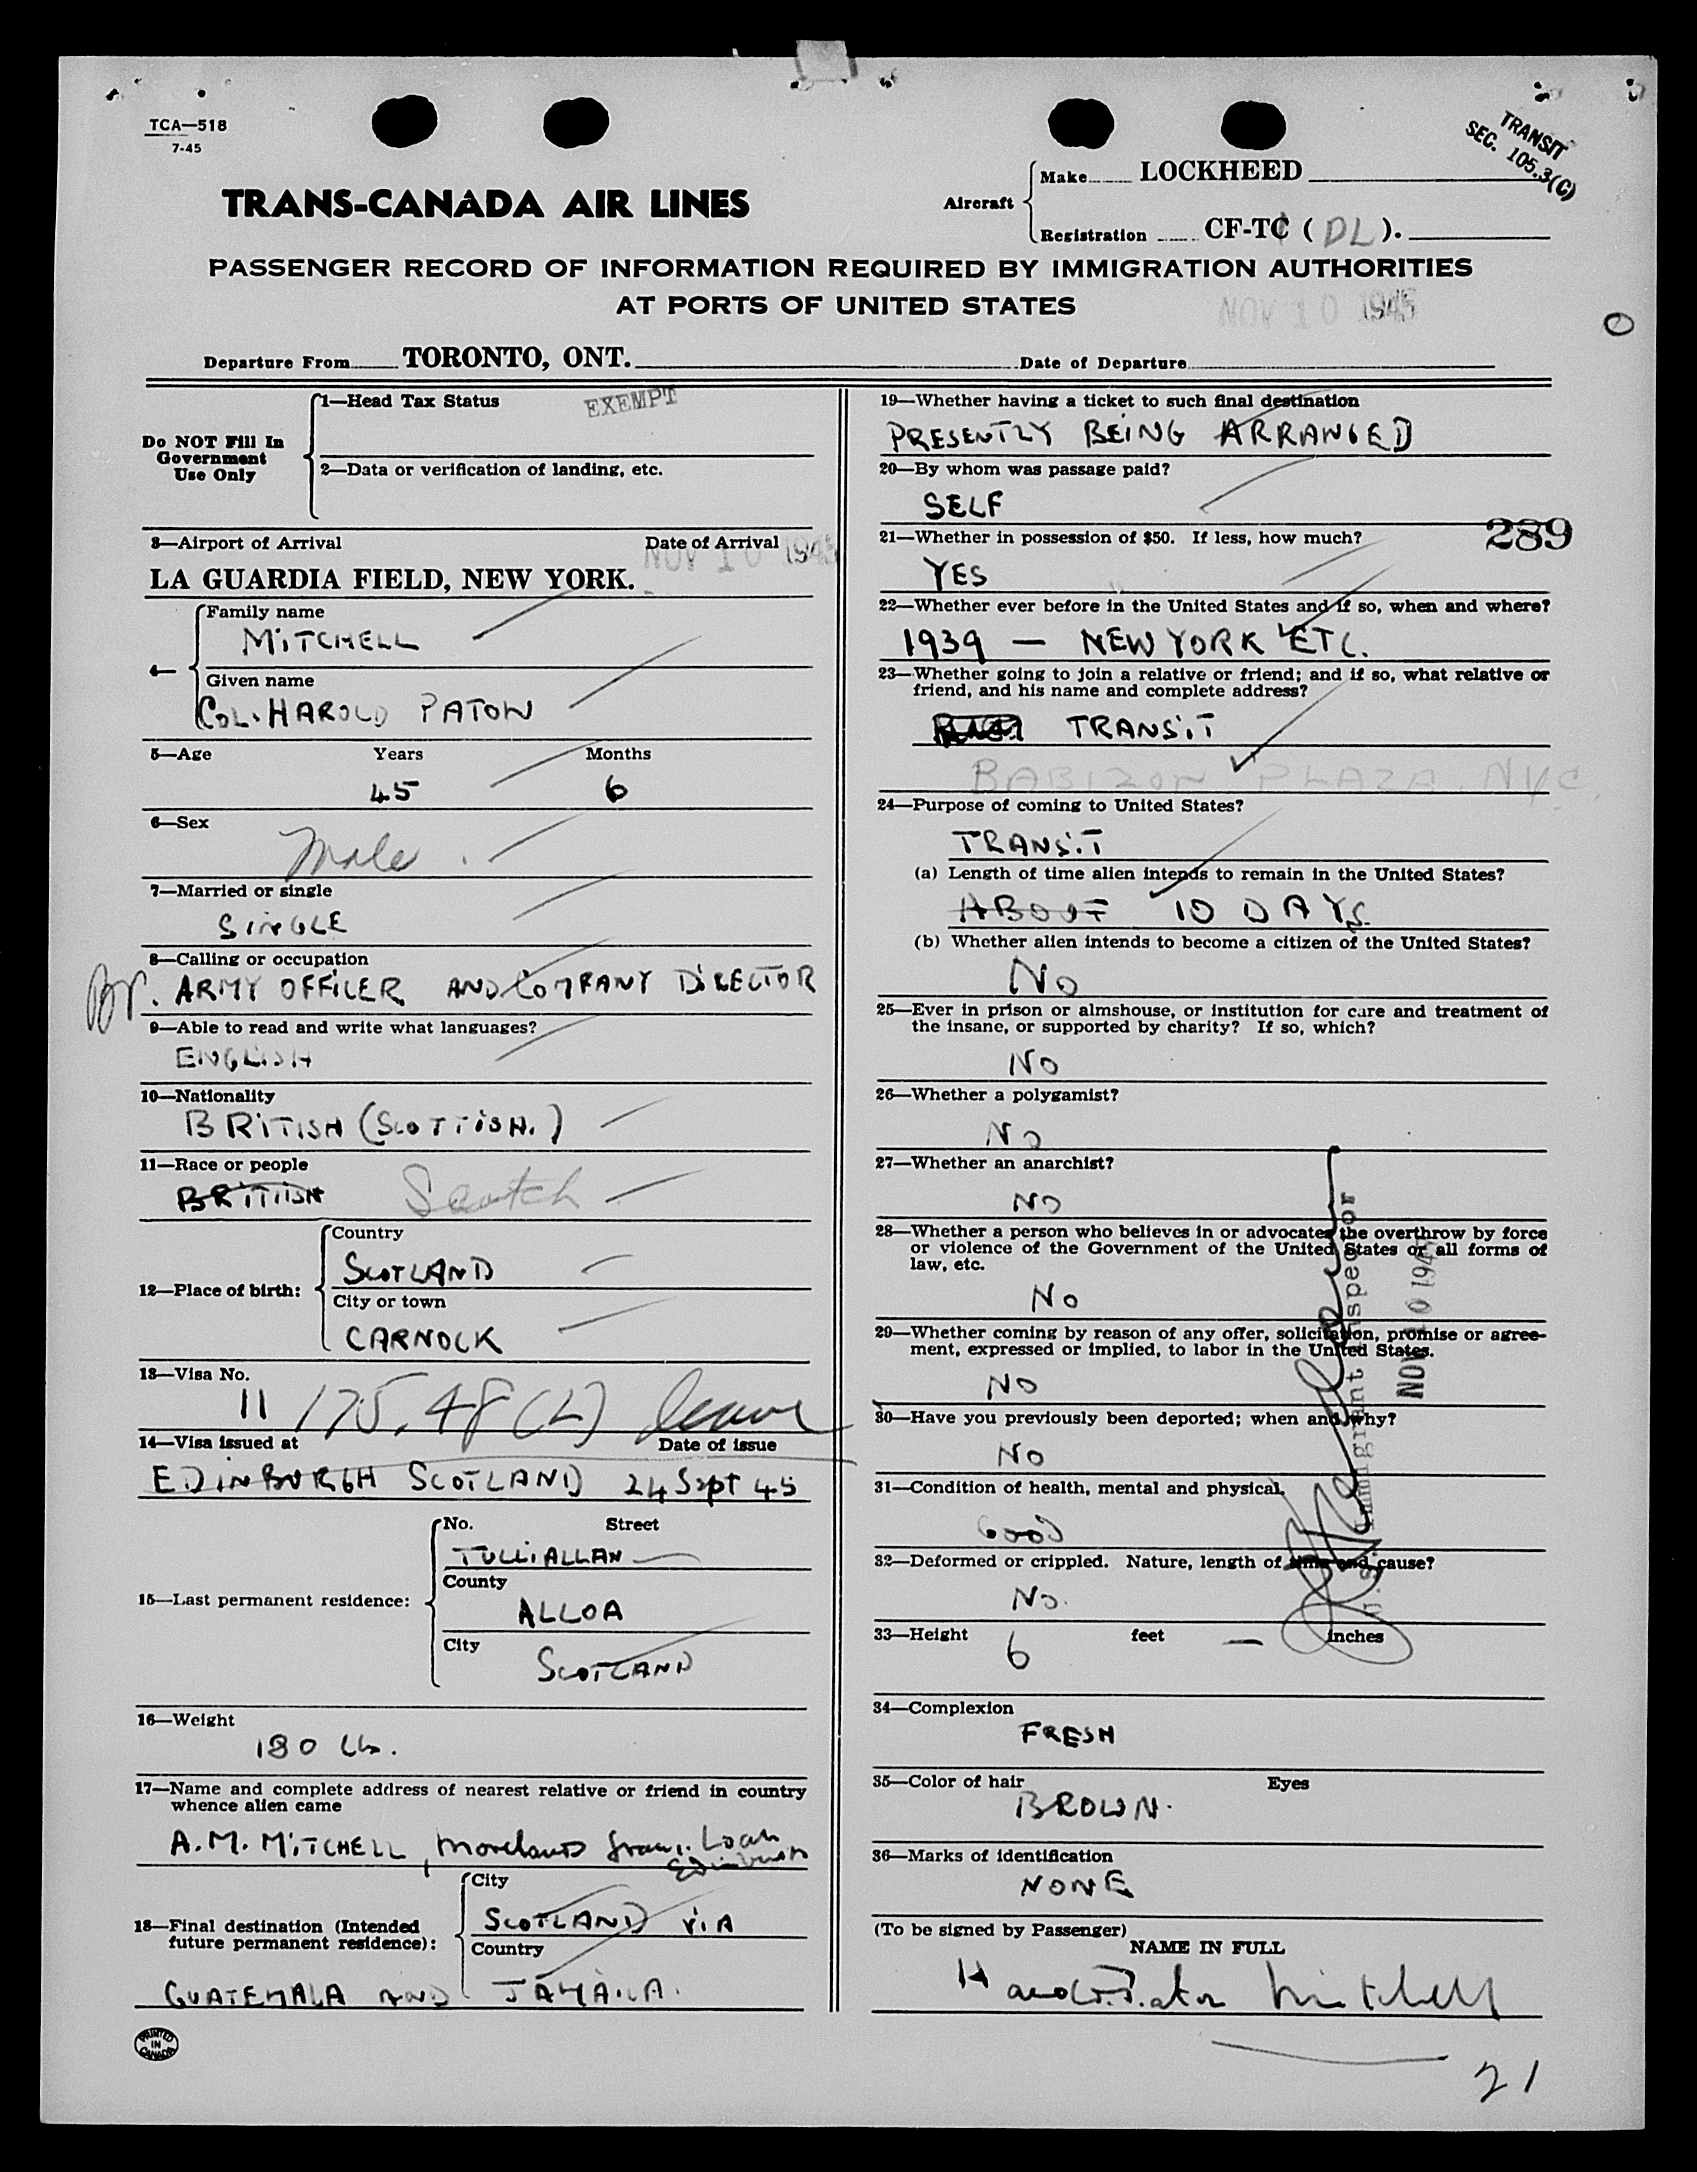 TCA—518
7-45
TRANSIT
SEC. 105.3(C)
TRANS-CANADA AIR LINES
Aircraft
Make LOCKHEED
Registration CF-TC ( DL ).
PASSENGER RECORD OF INFORMATION REQUIRED BY IMMIGRATION AUTHORITIES
AT PORTS OF UNITED STATES
NOV 10 1945
Departure From TORONTO, ONT. Date of Departure
Do NOT Fill In
Government
Use Only
1—Head Tax Status EXEMPT
2—Data or verification of landing, etc.
3—Airport of Arrival Date of Arrival
NOV 10 1945
LA GUARDIA FIELD, NEW YORK.
4—
Family name
MITCHELL
Given name
COL. HAROLD PATON
5—Age Years Months
45 6
6—Sex
Male.
7—Married or single
SINGLE
8—Calling or occupation
Br. ARMY OFFICER AND COMPANY DIRECTOR
9—Able to read and write what languages?
ENGLISH
10—Nationality
BRITISH (SCOTTISH.)
11—Race or people
BRITIISH Scotch
12—Place of birth:
Country
SCOTLAND
City or town
CARNOCK
13—Visa No.
11 175.48 (L)
14—Visa issued at Date of issue
EDINBURGH SCOTLAND 24 Sept 45
15—Last permanent residence:
No. Street
TULLIALLAN
County
ALLOA
City
SCOTLAND
16—Weight
180 Lb.
17—Name and complete address of nearest relative or friend in country
whence alien came
A.M. MITCHELL, Loan
Edinburgh
18—Final destination (Intended
future permanent residence):
City
SCOTLAND VIA
Country
GUATEMALA AND JAMAICA.
PRINTED
IN
CANADA
19—Whether having a ticket to such final destination
PRESENTLY BEING ARRANGED
20—By whom was passage paid?
SELF
289
21—Whether in possession of $50. If less, how much?
YES
22—Whether ever before in the United States and if so, when and where?
1939 — NEW YORK ETC.
23—Whether going to join a relative or friend; and if so, what relative or
friend, and his name and complete address?
TRANSIT
BABIZON PLAZA. NYC.
24—Purpose of coming to United States?
TRANSIT
(a) Length of time alien intends to remain in the United States?
ABOUT 10 DAYS
(b) Whether alien intends to become a citizen of the United States?
NO
25—Ever in prison or almshouse, or institution for care and treatment of
the insane, or supported by charity? If so, which?
NO
26—Whether a polygamist?
NO
27—Whether an anarchist?
NO
28—Whether a person who believes in or advocates the overthrow by force
or violence of the Government of the United States or all forms of
law, etc.
NO
29—Whether coming by reason of any offer, solicitation, promise or agree-
ment, expressed or implied, to labor in the United States.
NO
30—Have you previously been deported; when and why?
NO
31—Condition of health, mental and physical.
GOOD
32—Deformed or crippled. Nature, length of time and cause?
NO.
33—Height 6 feet — inches
U.S. Immigrant Inspector
NOV 10 1945
34—Complexion
FRESH
35—Color of hair Eyes
BROWN.
36—Marks of identification
NONE
(To be signed by Passenger)
NAME IN FULL
Harold Paton Mitchell
21